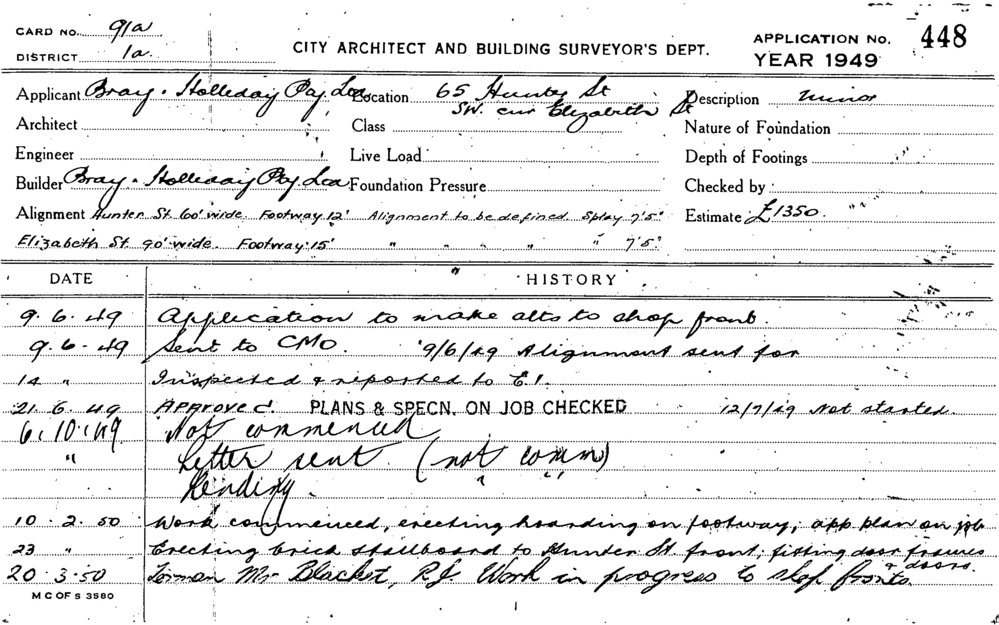 CARD NO. 91a
DISTRICT 1a.
CITY ARCHITECT AND BUILDING SURVEYOR'S DEPT.
APPLICATION No. 448
YEAR 1949
Applicant Bray & Holliday Pty Ltd Location 65 Hunter St Description Minor
SW. cnr Elizabeth St
Architect Class Nature of Foundation
Engineer Live Load Depth of Footings
Builder Bray & Holliday Pty Ltd Foundation Pressure Checked by
Alignment Hunter St. 60' wide. Footway 12' Alignment to be defined. Splay 7'5" Estimate £1350.
Elizabeth St. 90' wide. Footway 15' " " " " " 7'5"
DATE HISTORY
9.6.49 Application to make alts to shop front.
9.6.49 Sent to CMO. 9/6/49 Alignment sent for
14 " Inspected & reported to E.I.
21.6.49 Approved. PLANS & SPECN. ON JOB CHECKED 12/7/49 Not started.
6.10.49 Not commenced
" Letter sent (not comm)
Pending.
10.2.50 Work commenced, erecting hoarding on footway, app plan on job
23 " Erecting brick stallboard to Hunter St. front; fitting door frames
& doors.
20.3.50 Forman Mr Blacket, Work in progress to shop fronts.
M C OF S 3580